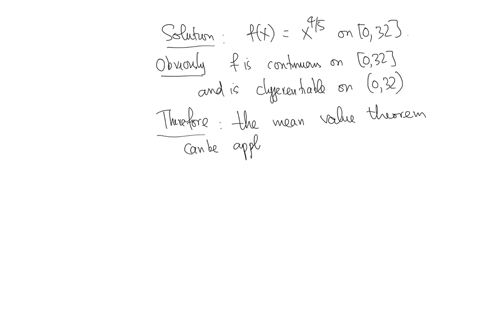 Solution : f(x) = x^{4/5} on [0,32].
Obviously f is continuous on [0,32]
and is differentiable on (0,32)
Therefore : the mean value theorem
can be appl